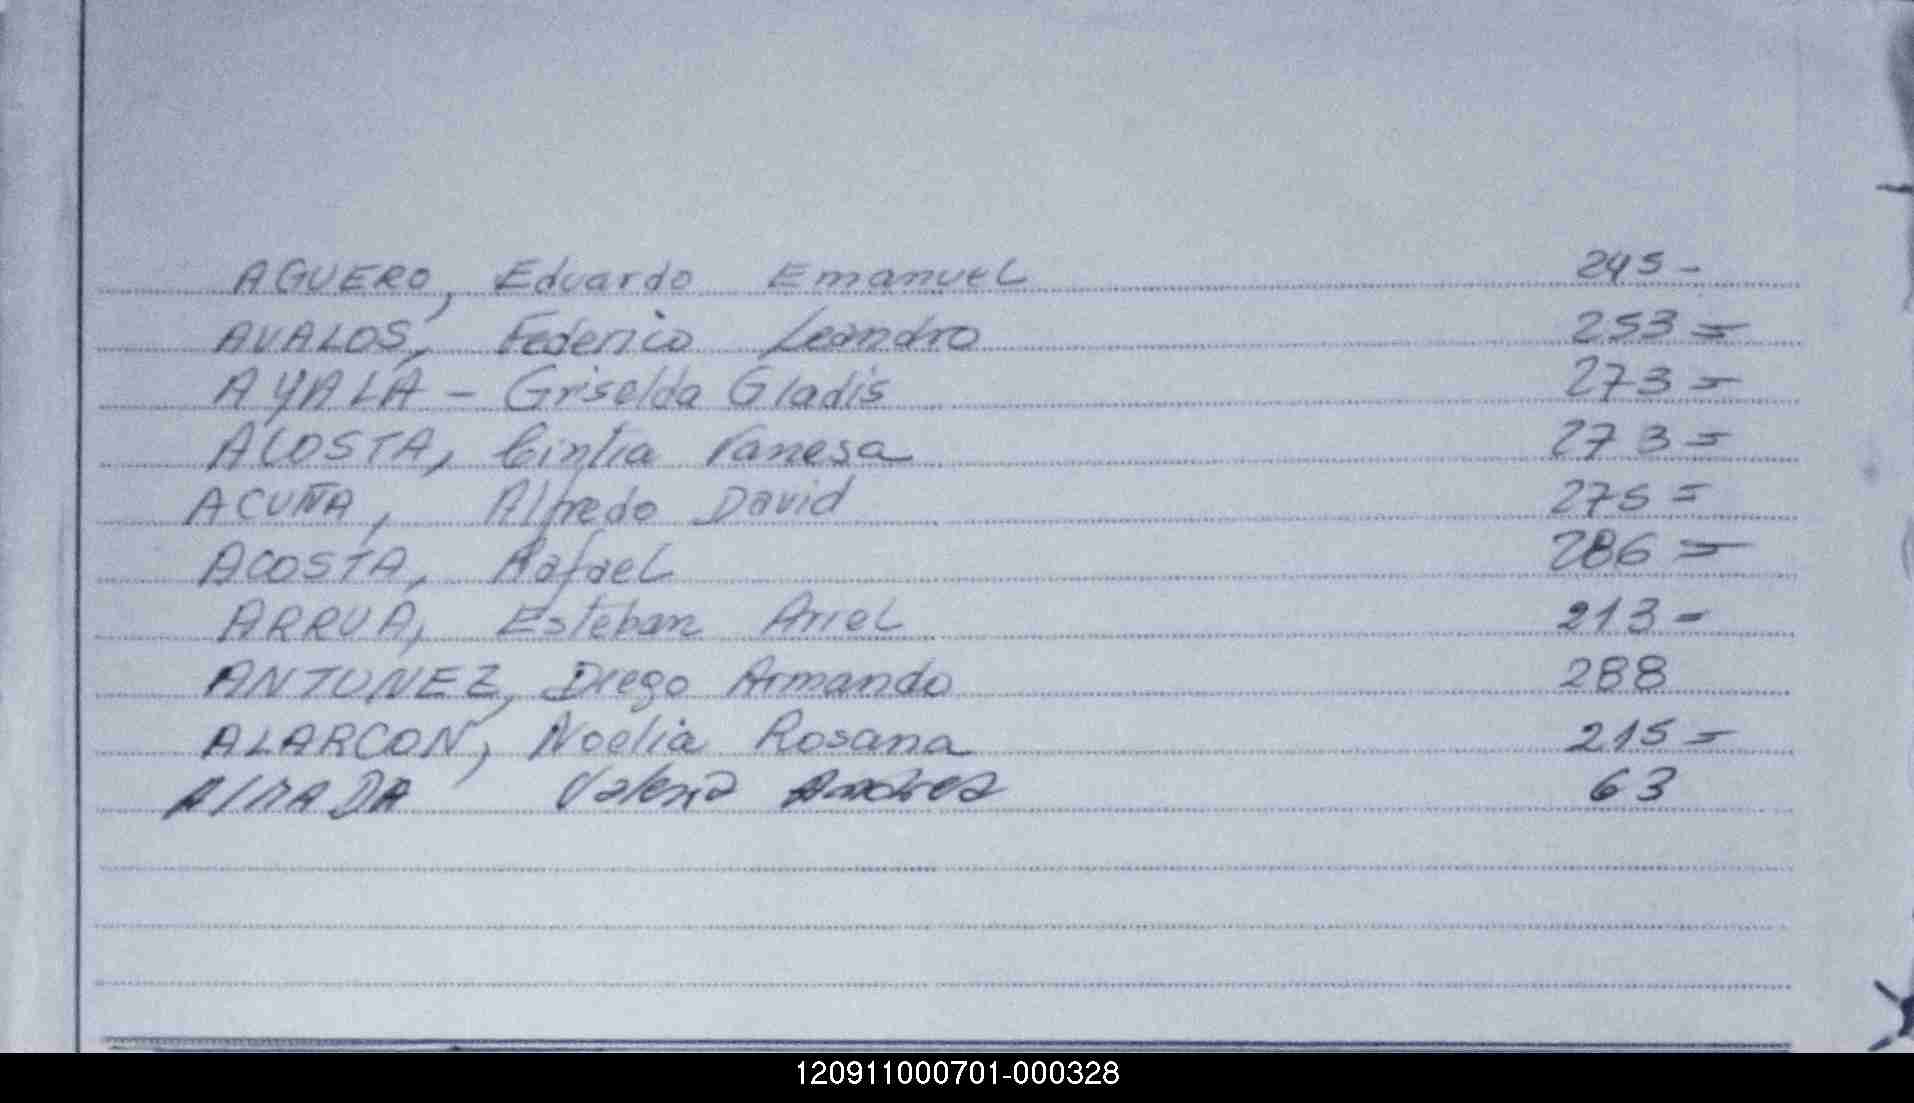 AGUERO, Eduardo Emanuel 245 -
AVALOS, Federico Leandro 253 =
AYALA - Griselda Gladis 273 =
ACOSTA, Cintia Vanesa 273 =
ACUÑA, Alfredo David 275 =
ACOSTA, Rafael 286 =
ARRUA, Esteban Ariel 213 -
ANTUNEZ, Diego Armando 288
ALARCON, Noelia Rosana 215 =
Valeria 63
120911000701-000328